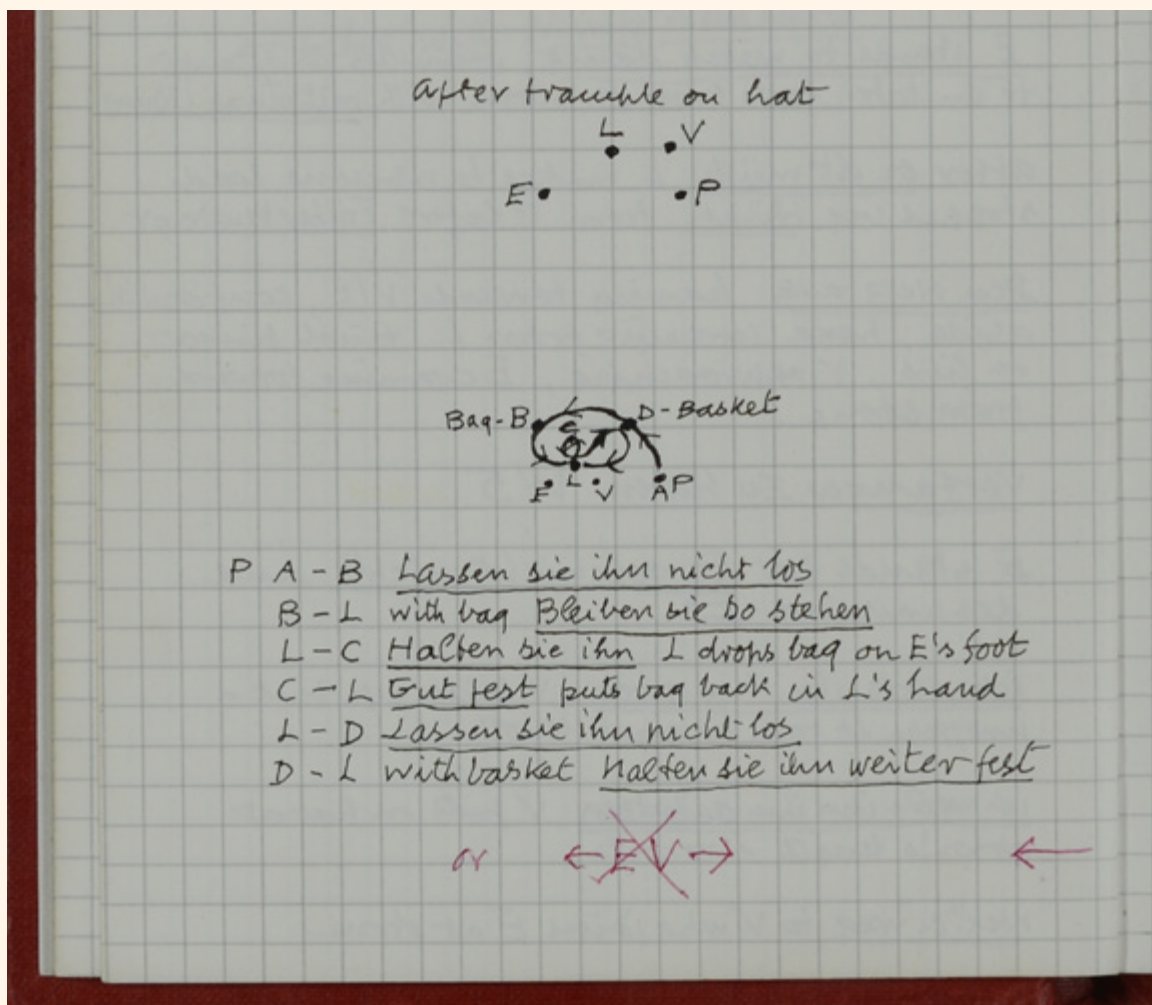 after trample on hat
L V
E P
Bag - B D - Basket
C
E L V A P
P A - B Lassen sie ihn nicht los
B - L with bag Bleiben sie so stehen
L - C Halten sie ihn L drops bag on E's foot
C - L Gut fest puts bag back in L's hand
L - D Lassen sie ihn nicht los
D - L with basket Halten sie ihn weiter fest
or ← E V → ←